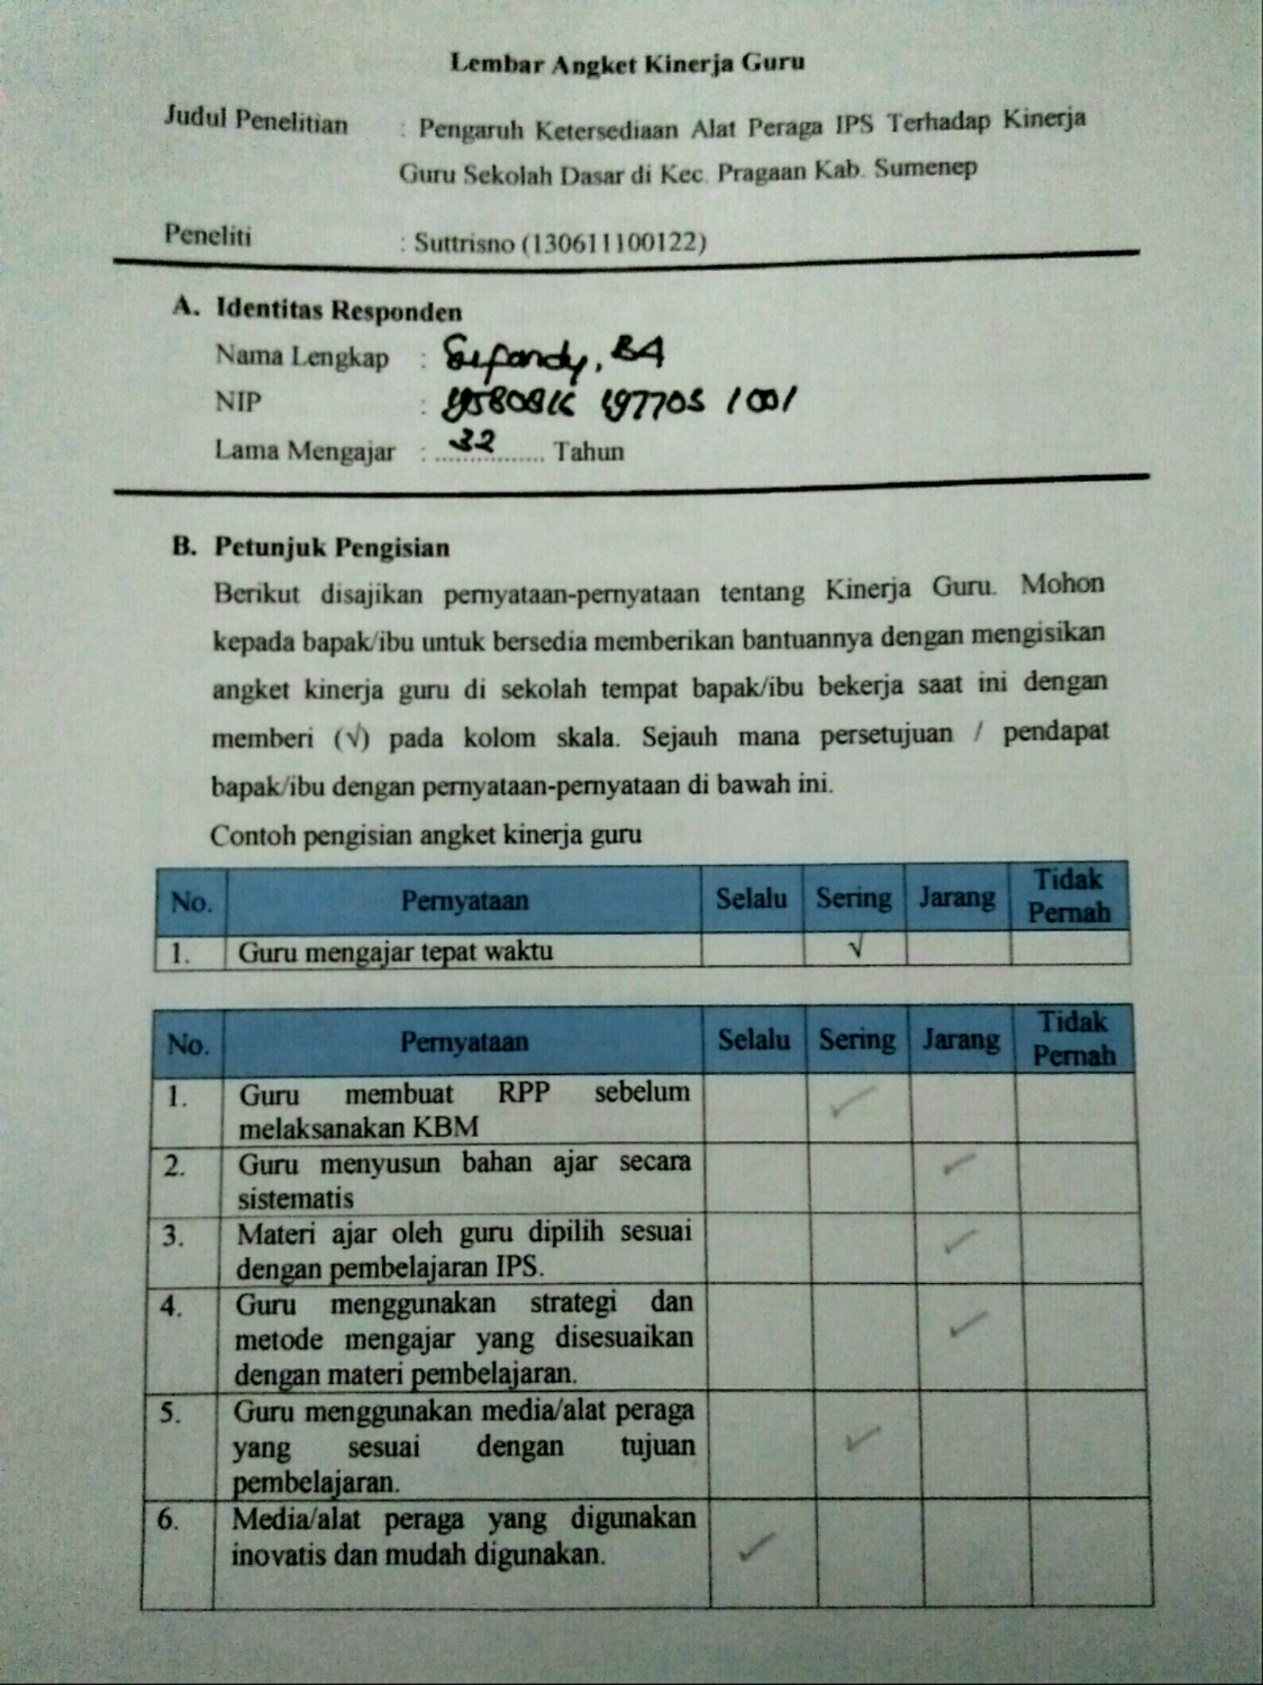 Lembar Angket Kinerja Guru
Judul Penelitian : Pengaruh Ketersediaan Alat Peraga IPS Terhadap Kinerja
Guru Sekolah Dasar di Kec. Pragaan Kab. Sumenep
Peneliti : Suttrisno (130611100122)
A. Identitas Responden
Nama Lengkap : , BA
NIP : 197703 1001
Lama Mengajar : 32 Tahun
B. Petunjuk Pengisian
Berikut disajikan pernyataan-pernyataan tentang Kinerja Guru. Mohon
kepada bapak/ibu untuk bersedia memberikan bantuannya dengan mengisikan
angket kinerja guru di sekolah tempat bapak/ibu bekerja saat ini dengan
memberi (√) pada kolom skala. Sejauh mana persetujuan / pendapat
bapak/ibu dengan pernyataan-pernyataan di bawah ini.
Contoh pengisian angket kinerja guru
No. Pernyataan Selalu Sering Jarang Tidak Pernah
1. Guru mengajar tepat waktu √
No. Pernyataan Selalu Sering Jarang Tidak Pernah
1. Guru membuat RPP sebelum ✓
melaksanakan KBM
2. Guru menyusun bahan ajar secara ✓
sistematis
3. Materi ajar oleh guru dipilih sesuai ✓
dengan pembelajaran IPS.
4. Guru menggunakan strategi dan
metode mengajar yang disesuaikan ✓
dengan materi pembelajaran.
5. Guru menggunakan media/alat peraga
yang sesuai dengan tujuan ✓
pembelajaran.
6. Media/alat peraga yang digunakan
inovatis dan mudah digunakan. ✓